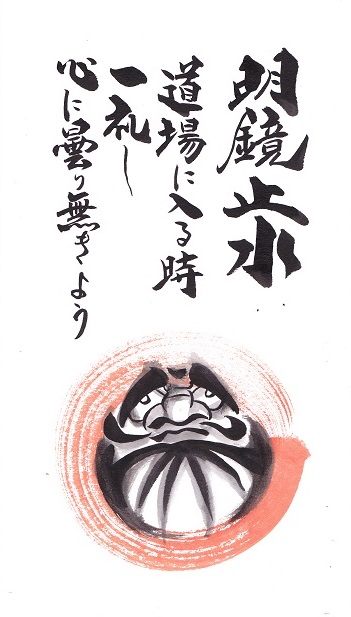 明鏡止水
道場に入る時
一礼し
心に曇り無きよう